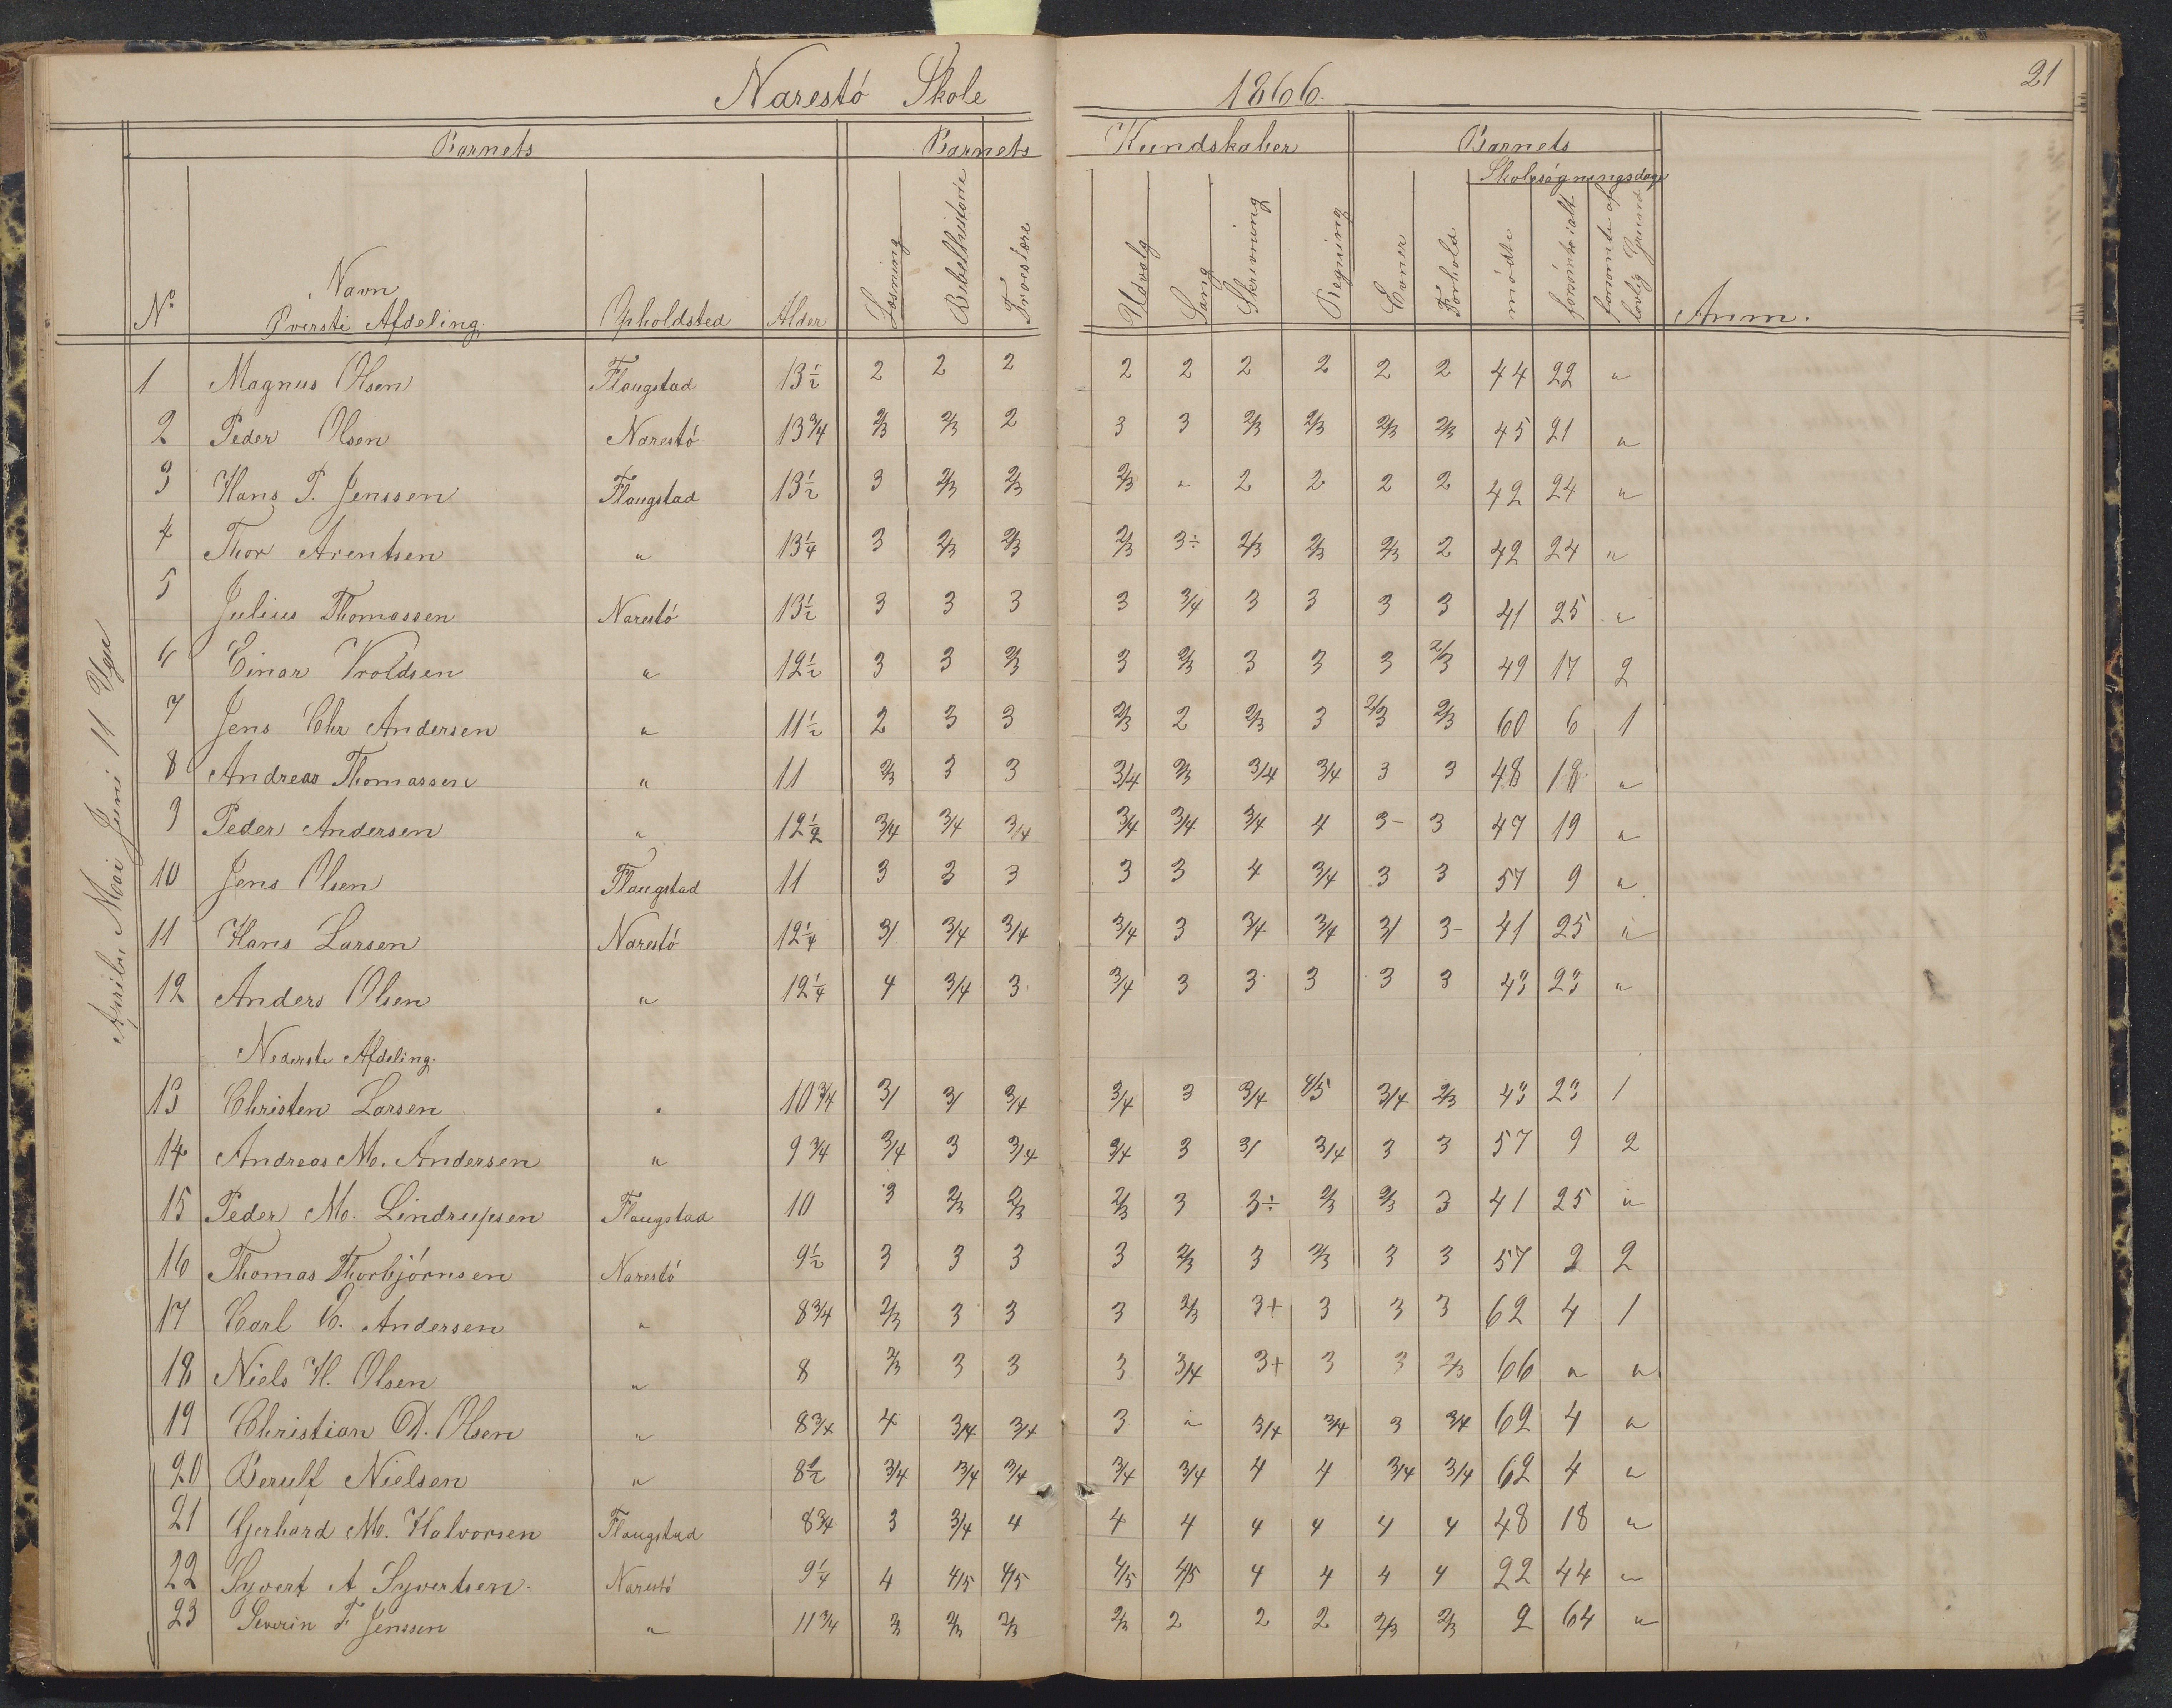 Narestö Skole 1866. 21
Barnets Barnets Kundskaber Barnets
Skolesøgningsdage
No Navn Opholdsted Alder Læsning Bibelhistorie Troeslære Udvalg Sang Skrivning Regning Evner Forhold mødte forsømte ialt forsømte af lovlig Grund Anm.
Øverste Afdeling.
April Mai Juni 11 Uger
1 Magnus Olsen Flaugstad 13½ 2 2 2 2 2 2 2 2 2 44 22 "
2 Peder Olsen Narestö 13¾ 2/3 2/3 2 3 3 2/3 2/3 2/3 2/3 45 21 "
3 Hans P. Jenssen Flaugstad 13½ 3 2/3 2/3 2/3 " 2 2 2 2 42 24 "
4 Thor Arentsen " 13¼ 3 2/3 2/3 2/3 3÷ 2/3 2/3 2/3 2 42 24 "
5 Julius Thomassen Narestö 13½ 3 3 3 3 3/4 3 3 3 3 41 25 "
6 Einar Vroldsen " 12½ 3 3 2/3 3 2/3 3 3 3 2/3 49 17 2
7 Jens Chr Andersen " 11½ 2 3 3 2/3 2 2/3 3 2/3 2/3 60 6 1
8 Andreas Thomassen " 11 2/3 3 3 3/4 2/3 3/4 3/4 3 3 48 18 "
9 Peder Andersen " 12½ 3/4 3/4 3/4 3/4 3/4 3/4 4 3- 3 47 19 "
10 Jens Olsen Flaugstad 11 3 3 3 3 3 4 3/4 3 3 57 9 "
11 Hans Larsen Narestö 12¼ 3/ 3/4 3/4 3/4 3 3/4 3/4 3/ 3- 41 25 "
12 Anders Olsen " 12¼ 4 3/4 3 3/4 3 3 3 3 3 43 23 "
Nederste Afdeling.
13 Christen Larsen " 10¾ 3/ 3/ 3/4 3/4 3 3/4 4/5 3/4 2/3 43 23 1
14 Andreas M. Andersen " 9¾ 3/4 3 3/4 3/4 3 3/ 3/4 3 3 57 9 2
15 Peder M. Lindrupsen Flaugstad 10 3 2/3 2/3 2/3 3 3÷ 2/3 2/3 3 41 25 "
16 Thomas Thorbjörnsen Narestö 9½ 3 3 3 3 2/3 3 2/3 3 3 57 9 2
17 Carl C. Andersen " 8¾ 2/3 3 3 3 2/3 3+ 3 3 3 62 4 1
18 Niels H. Olsen " 8 2/3 3 3 3 3/4 3+ 3 3 2/3 66 " "
19 Christian D. Olsen " 8¾ 4 3/4 3/4 3 " 3/4 3/4 3 3/4 62 4 "
20 Berulf Nielsen " 8½ 3/4 3/4 3/4 3/4 3/4 4 4 3/4 3/4 62 4 "
21 Gerhard M. Halvorsen Flaugstad 8¾ 3 3/4 4 4 4 4 4 4 4 48 18 "
22 Syvert A Syvertsen. Narestö 9¼ 4 4/5 4/5 4/5 4/5 4 4 4 4 22 44 "
23 Severin F. Jenssen " 11¾ 2/3 2/3 2/3 2/3 2 2 2 2/3 2/3 2 64 "